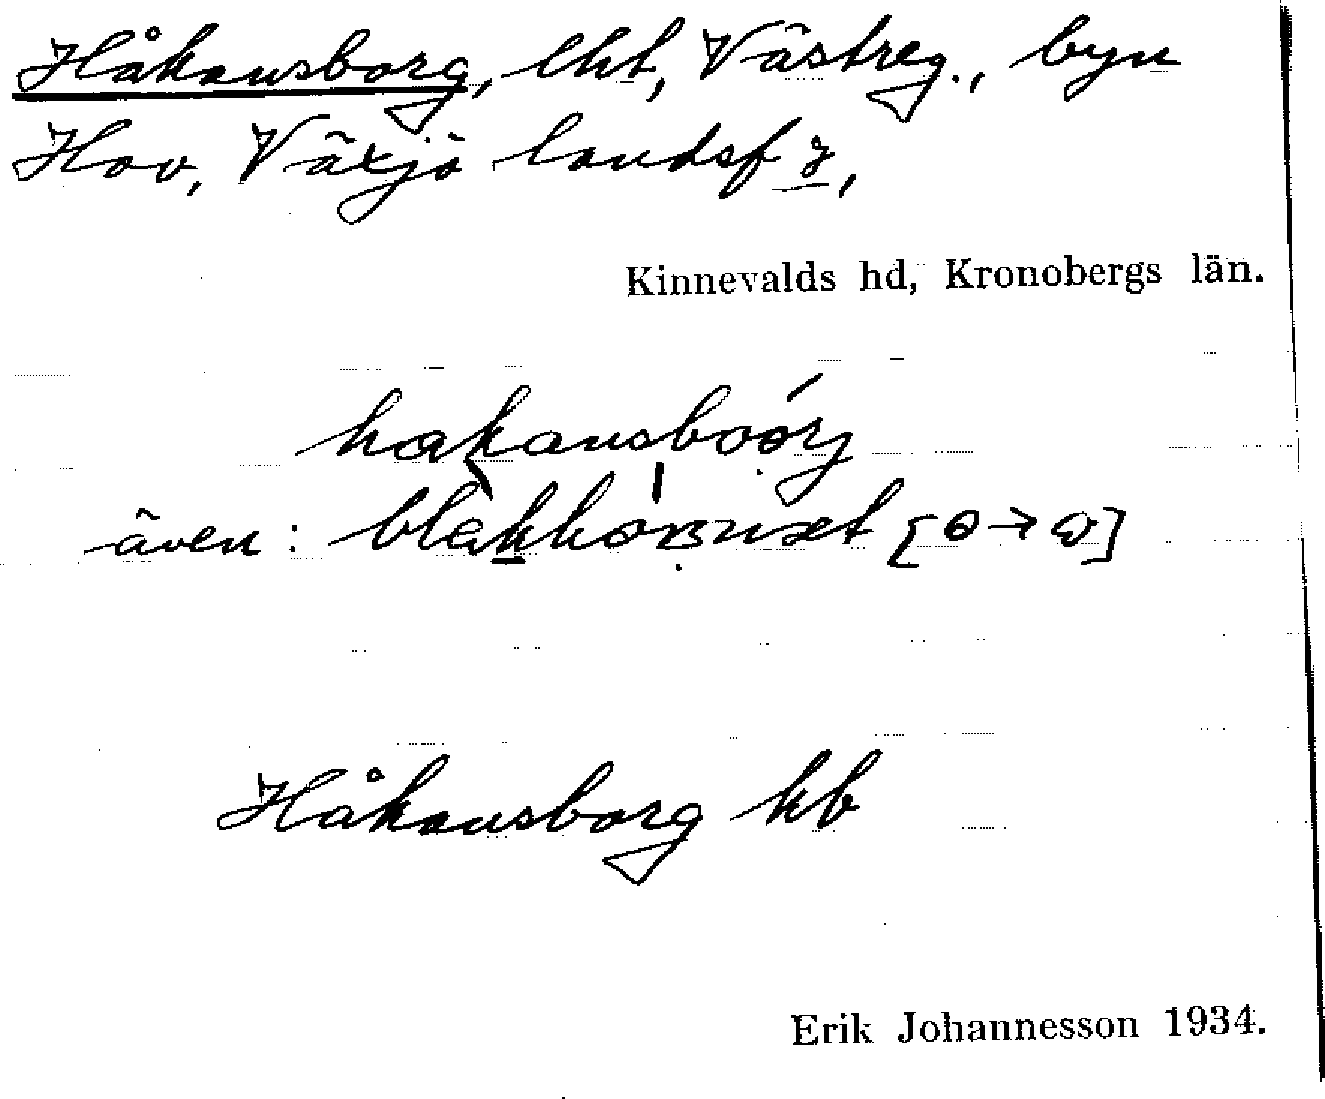 Håkansborg, lht, Västreg., byn
Hov, Växjö landsf
Kinnevalds hd, Kronobergs län.
hakansboórj
även: blakkhornet [o→ɷ]
Håkansborg kb
Erik Johannesson 1934.